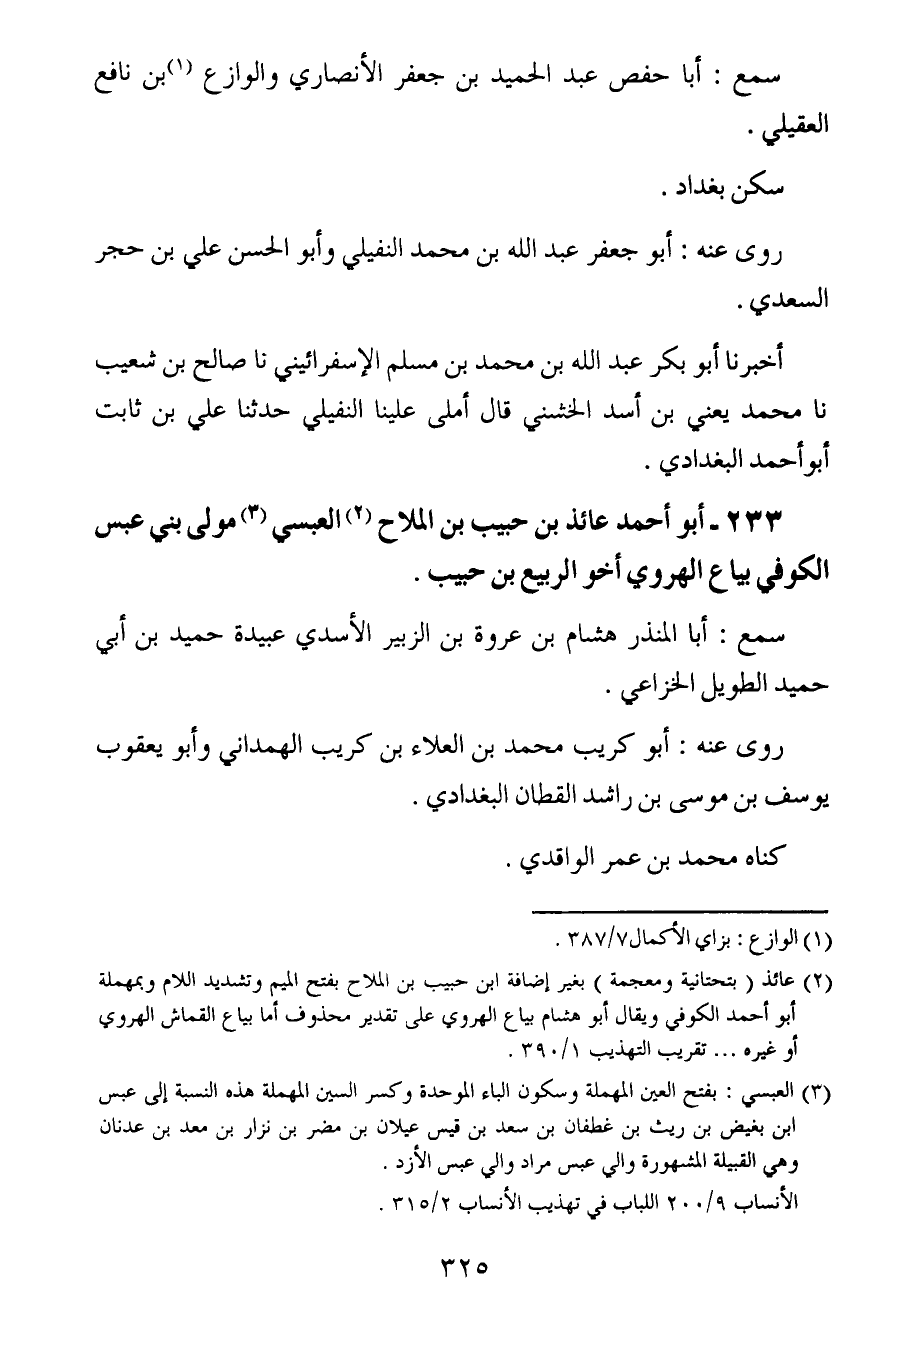 سمع : أبا حفص عبد الحميد بن جعفر الأنصاري والوازع (١) بن نافع
العقيلي .
سكن بغداد .
روى عنه : أبو جعفر عبد الله بن محمد النفيلي وأبو الحسن علي بن حجر
السعدي .
أخبرنا أبو بكر عبد الله بن محمد بن مسلم الإسفرائيني نا صالح بن شعيب
نا محمد يعني بن أسد الخشني قال أملى علينا النفيلي حدثنا علي بن ثابت
أبو أحمد البغدادي .
٢٣٣ - أبو أحمد عائذ بن حبيب بن الملاح (٢) العبسي (٣) مولى بني عبس
الكوفي بياع الهروي أخو الربيع بن حبيب .
سمع : أبا المنذر هشام بن عروة بن الزبير الأسدي عبيدة حميد بن أبي
حميد الطويل الخزاعي .
روى عنه : أبو كريب محمد بن العلاء بن كريب الهمداني وأبو يعقوب
يوسف بن موسى بن راشد القطان البغدادي .
كناه محمد بن عمر الواقدي .
(١) الوازع : بزاي الأكمال ٣٨٧/٧ .
(٢) عائذ ( بتحتانية ومعجمة ) بغير إضافة ابن حبيب بن الملاح بفتح الميم وتشديد اللام وبمهملة
أبو أحمد الكوفي ويقال أبو هشام بياع الهروي على تقدير محذوف أما بياع القماش الهروي
أو غيره ... تقريب التهذيب ٣٩٠/١ .
(٣) العبسي : بفتح العين المهملة وسكون الباء الموحدة وكسر السين المهملة هذه النسبة إلى عبس
ابن بغيض بن ريث بن غطفان بن سعد بن قيس عيلان بن مضر بن نزار بن معد بن عدنان
وهي القبيلة المشهورة والي عبس مراد والي عبس الأزد .
الأنساب ٢٠٠/٩ اللباب في تهذيب الأنساب ٣١٥/٢ .
٣٢٥